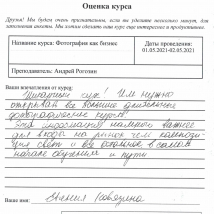 Оценка курса
Друзья! Мы будем очень признательны, если вы уделите несколько минут, для
заполнения анкеты. Мы хотим сделать наш курс еще интереснее и продуктивнее.
Название курса: Фотография как бизнес
Дата проведения:
01.05.2021-02.05.2021
Преподаватель: Андрей Рогозин
Ваши впечатления от курса:
Шикарный курс! Им нужно
открывать все
фотографические курсы!
Эта информация намного важнее
для входа на рынок чем
свет и все остальное в самом
начале обучения и пути
Ваше имя: